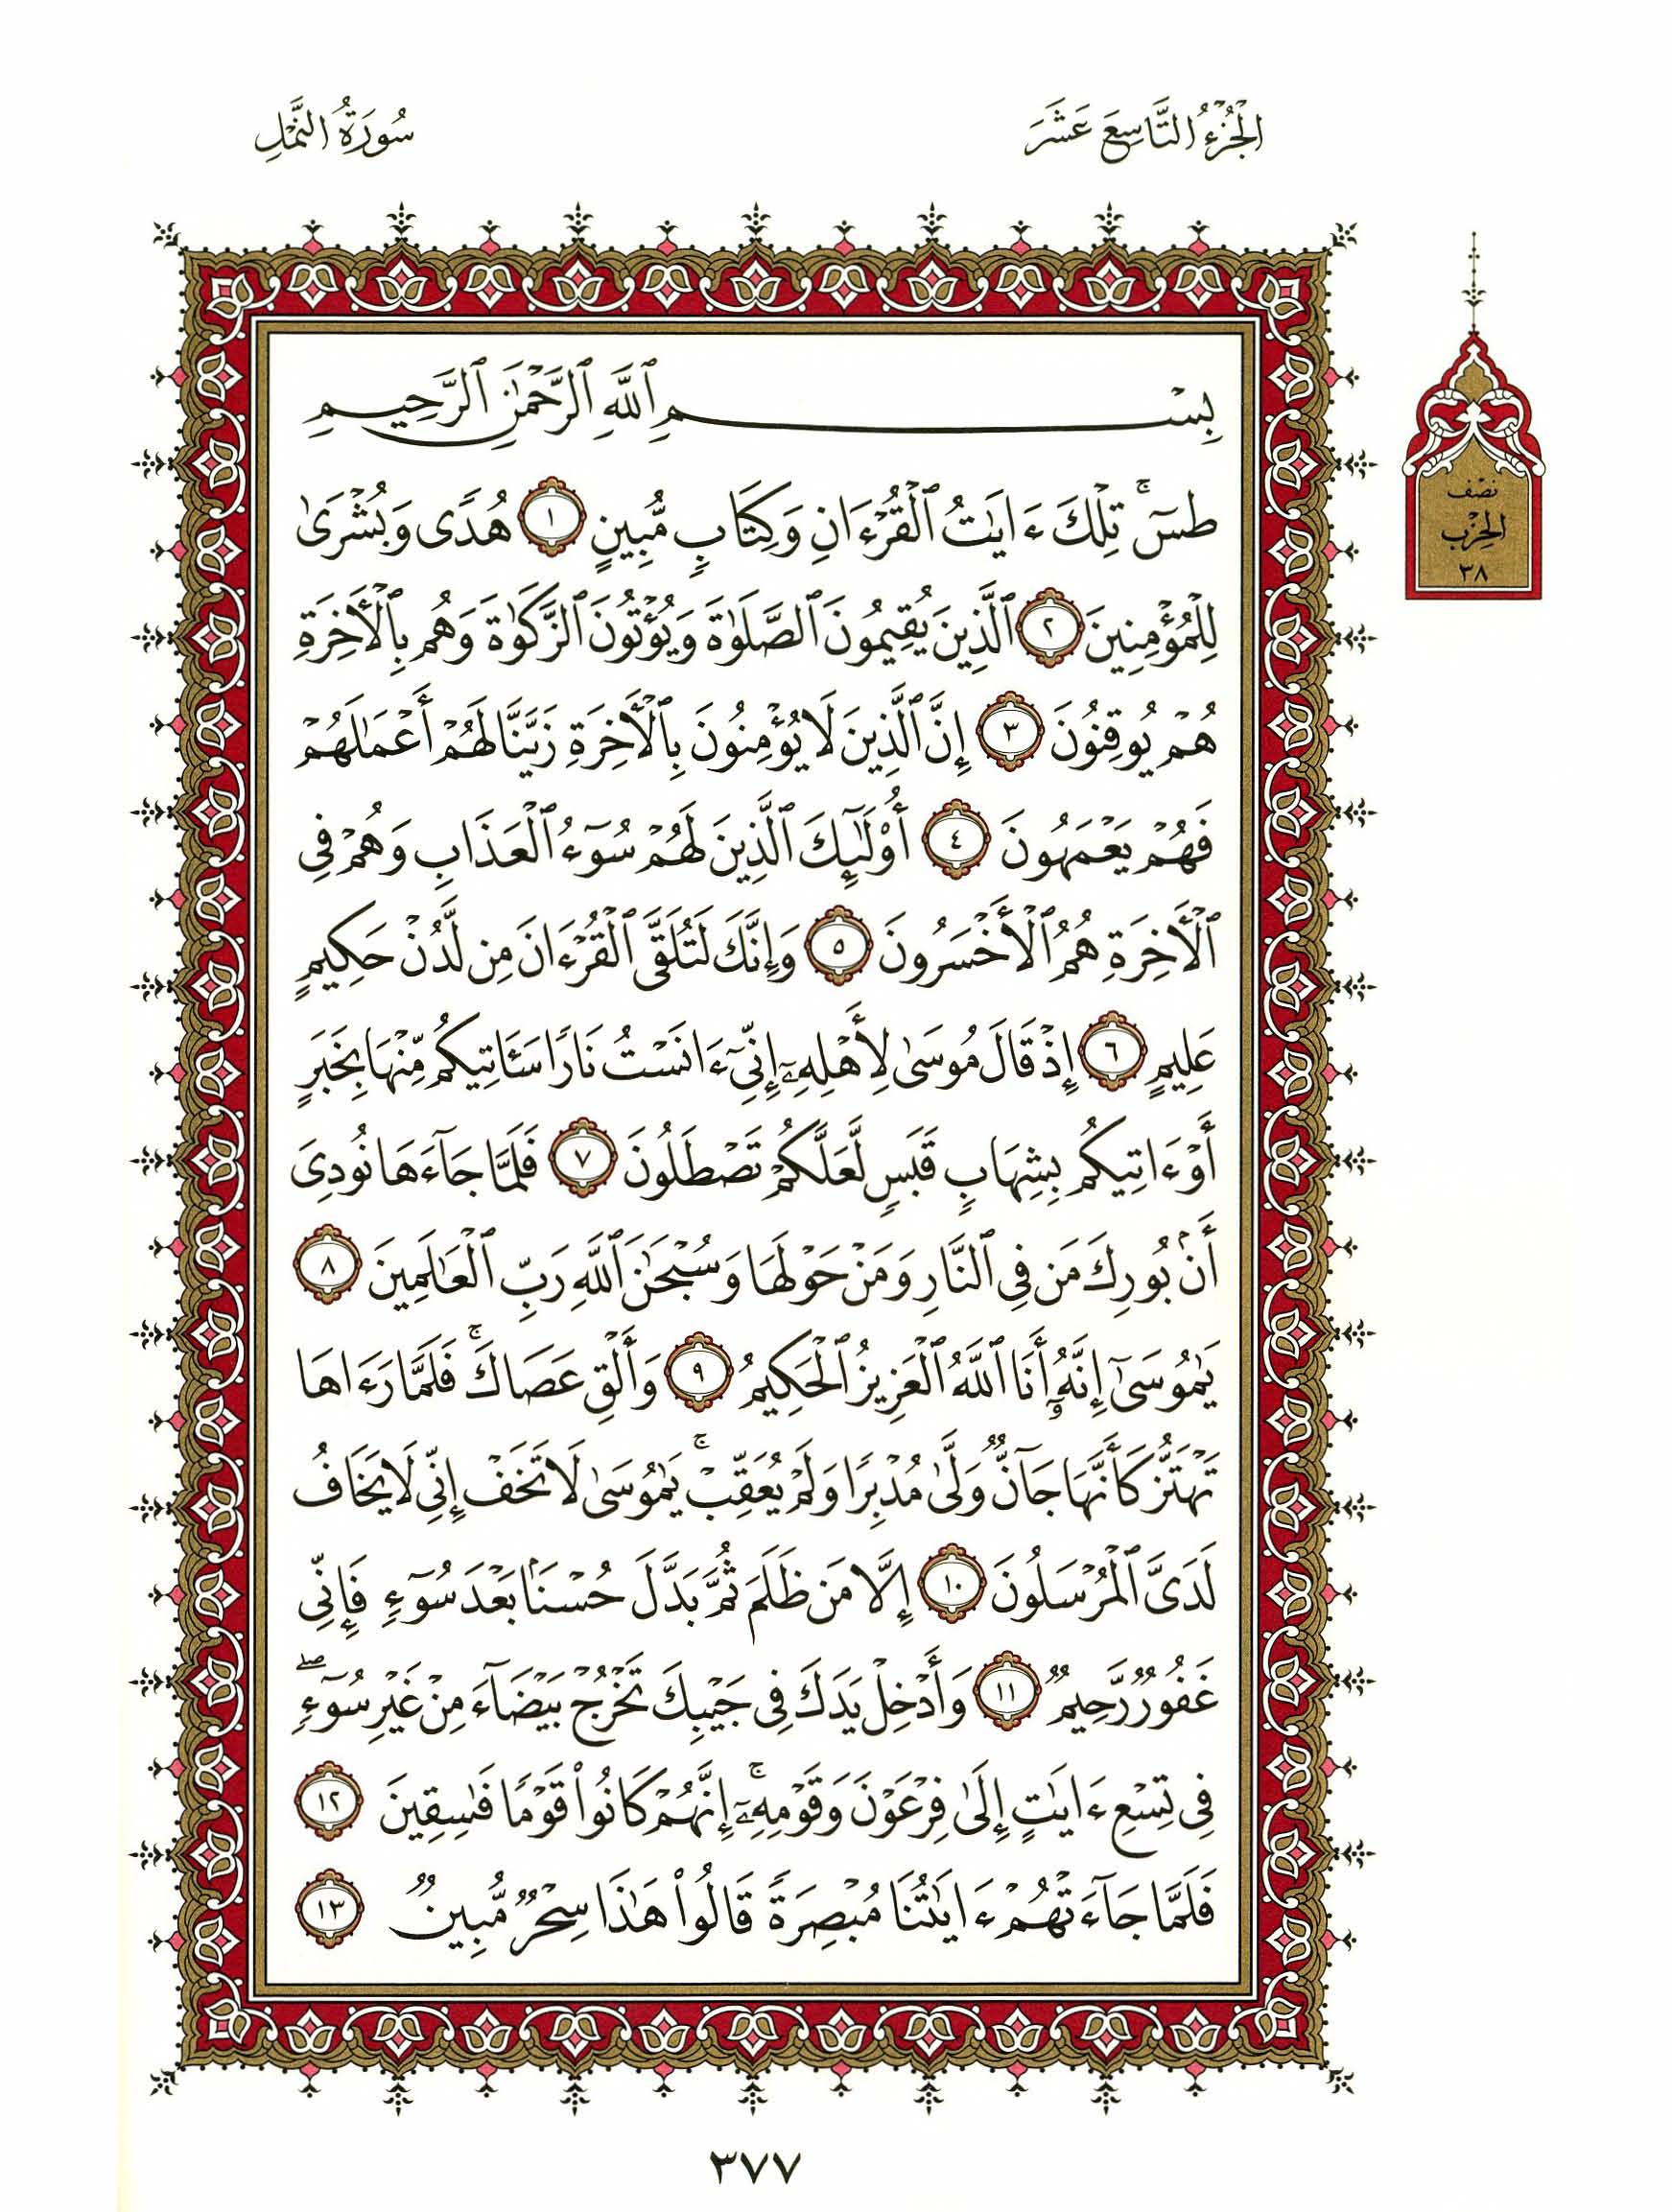 الجُزْءُ التَّاسِعَ عَشَرَ
سُورَةُ النَّمْلِ
نصْف
الحِزْب
٣٨
بِسْمِ ٱللَّهِ ٱلرَّحْمَٰنِ ٱلرَّحِيمِ
طسٓۚ تِلْكَ ءَايَٰتُ ٱلْقُرْءَانِ وَكِتَابٍ مُّبِينٍ ١ هُدًى وَبُشْرَىٰ
لِلْمُؤْمِنِينَ ٢ ٱلَّذِينَ يُقِيمُونَ ٱلصَّلَوٰةَ وَيُؤْتُونَ ٱلزَّكَوٰةَ وَهُم بِٱلْأَخِرَةِ
هُمْ يُوقِنُونَ ٣ إِنَّ ٱلَّذِينَ لَا يُؤْمِنُونَ بِٱلْأَخِرَةِ زَيَّنَّا لَهُمْ أَعْمَٰلَهُمْ
فَهُمْ يَعْمَهُونَ ٤ أُوْلَٰٓئِكَ ٱلَّذِينَ لَهُمْ سُوٓءُ ٱلْعَذَابِ وَهُمْ فِى
ٱلْأَخِرَةِ هُمُ ٱلْأَخْسَرُونَ ٥ وَإِنَّكَ لَتُلَقَّى ٱلْقُرْءَانَ مِن لَّدُنْ حَكِيمٍ
عَلِيمٍ ٦ إِذْ قَالَ مُوسَىٰ لِأَهْلِهِۦٓ إِنِّىٓ ءَانَسْتُ نَارًا سَـَٔاتِيكُم مِّنْهَا بِخَبَرٍ
أَوْ ءَاتِيكُم بِشِهَابٍ قَبَسٍ لَّعَلَّكُمْ تَصْطَلُونَ ٧ فَلَمَّا جَآءَهَا نُودِىَ
أَنۢ بُورِكَ مَن فِى ٱلنَّارِ وَمَنْ حَوْلَهَا وَسُبْحَٰنَ ٱللَّهِ رَبِّ ٱلْعَٰلَمِينَ ٨
يَٰمُوسَىٰٓ إِنَّهُۥٓ أَنَا ٱللَّهُ ٱلْعَزِيزُ ٱلْحَكِيمُ ٩ وَأَلْقِ عَصَاكَۚ فَلَمَّا رَءَاهَا
تَهْتَزُّ كَأَنَّهَا جَآنٌّ وَلَّىٰ مُدْبِرًا وَلَمْ يُعَقِّبْۚ يَٰمُوسَىٰ لَا تَخَفْ إِنِّى لَا يَخَافُ
لَدَىَّ ٱلْمُرْسَلُونَ ١٠ إِلَّا مَن ظَلَمَ ثُمَّ بَدَّلَ حُسْنًۢا بَعْدَ سُوٓءٍ فَإِنِّى
غَفُورٌ رَّحِيمٌ ١١ وَأَدْخِلْ يَدَكَ فِى جَيْبِكَ تَخْرُجْ بَيْضَآءَ مِنْ غَيْرِ سُوٓءٍۖ
فِى تِسْعِ ءَايَٰتٍ إِلَىٰ فِرْعَوْنَ وَقَوْمِهِۦٓۚ إِنَّهُمْ كَانُوا۟ قَوْمًا فَٰسِقِينَ ١٢
فَلَمَّا جَآءَتْهُمْ ءَايَٰتُنَا مُبْصِرَةً قَالُوا۟ هَٰذَا سِحْرٌ مُّبِينٌ ١٣
٣٧٧